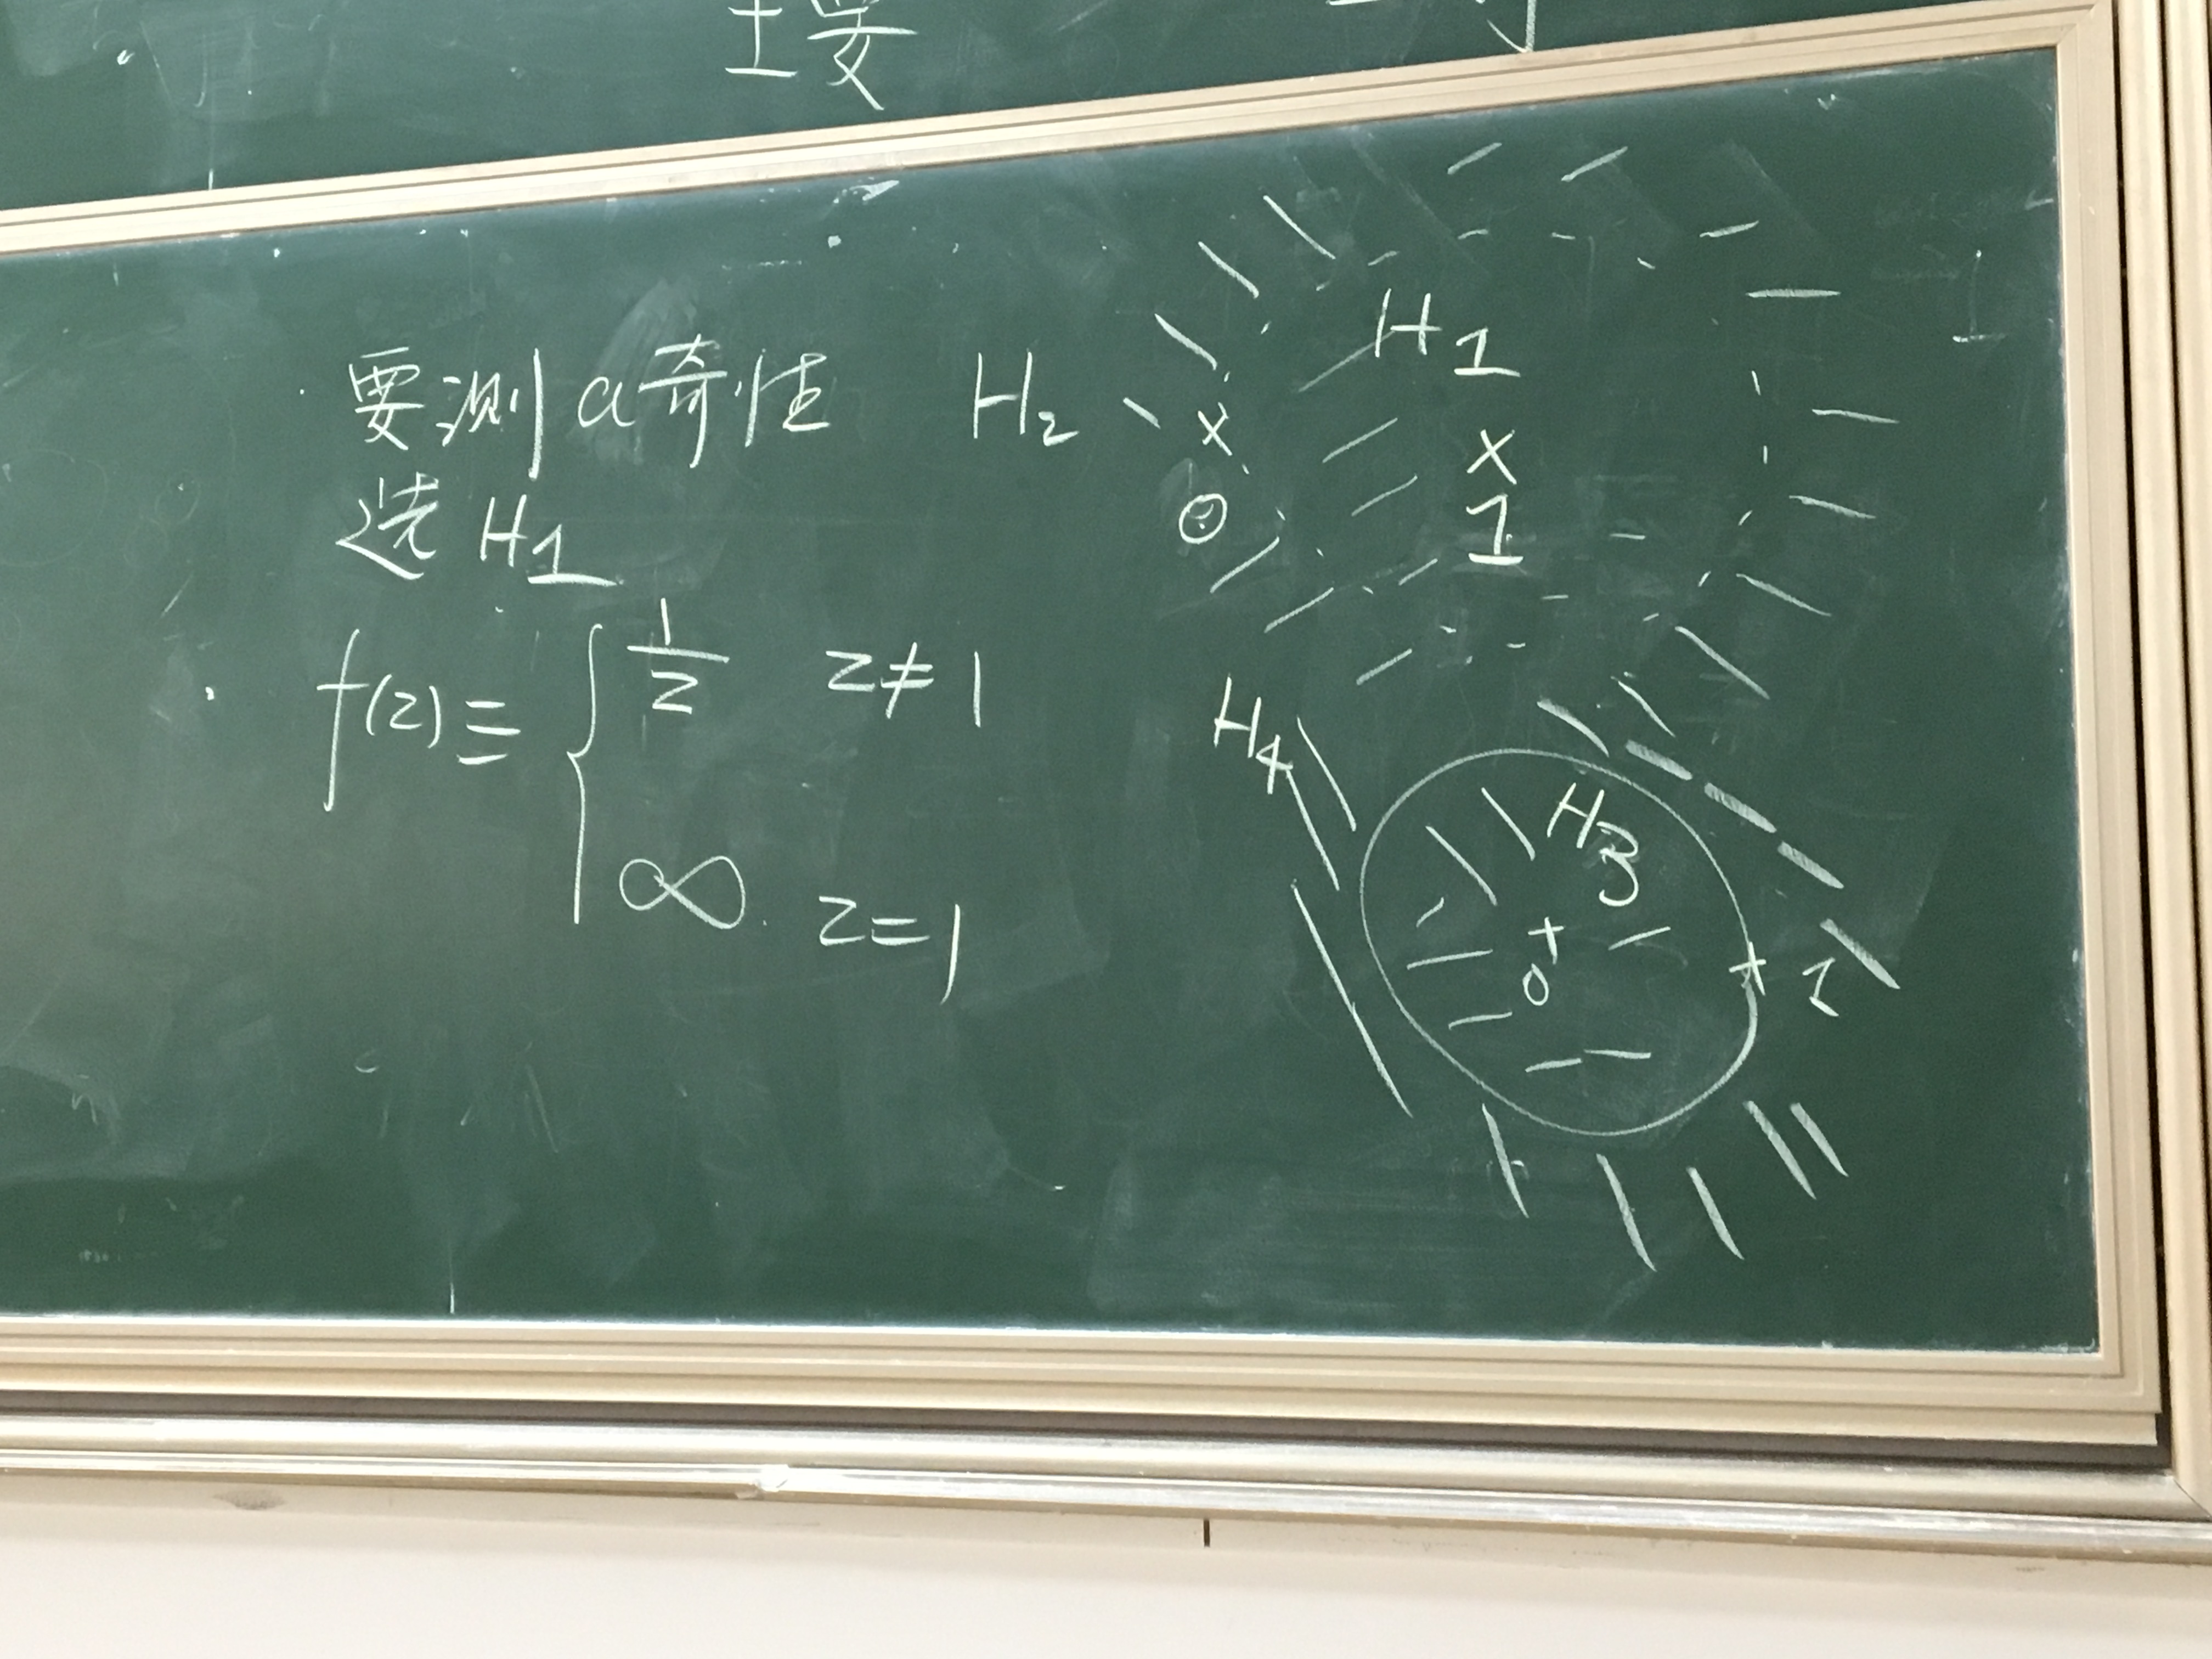 要
要测a奇性
选H1
f(z)≡{ 1/z z≠1
∞ z=1
H2
H1
x
x
1
0
H4
H3
+
0
+ 1